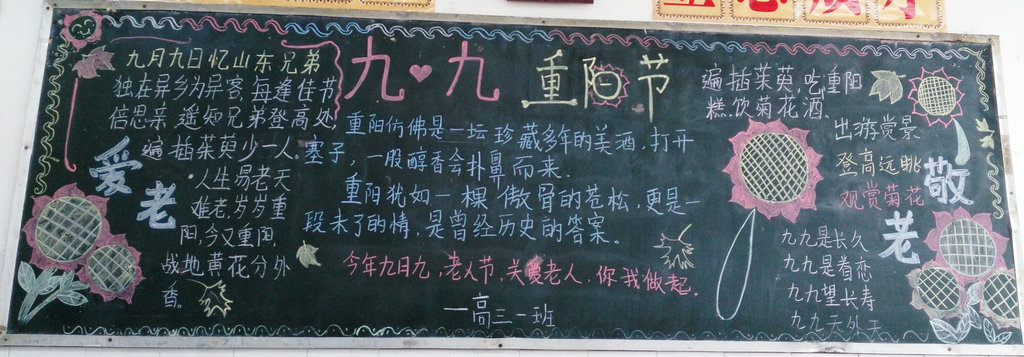 九月九日忆山东兄弟
独在异乡为异客,每逢佳节
倍思亲,遥知兄弟登高处,
遍插茱萸少一人。
爱老
·人生易老天
难老,岁岁重
阳,今又重阳,
战地黄花分外
香。
九九重阳节
重阳仿佛是一坛珍藏多年的美酒,打开
塞子,一股醇香会扑鼻而来.
重阳犹如一棵傲骨的苍松,更是一
段未了的情,是曾经历史的答案。
今年九月九,老人节,关爱老人,你我做起.
—高三一班
遍插茱萸,吃重阳
糕,饮菊花酒。
出游赏景
登高远眺
观赏菊花
敬老
九九是长久
九九是眷恋
九九望长寿
九九天外天